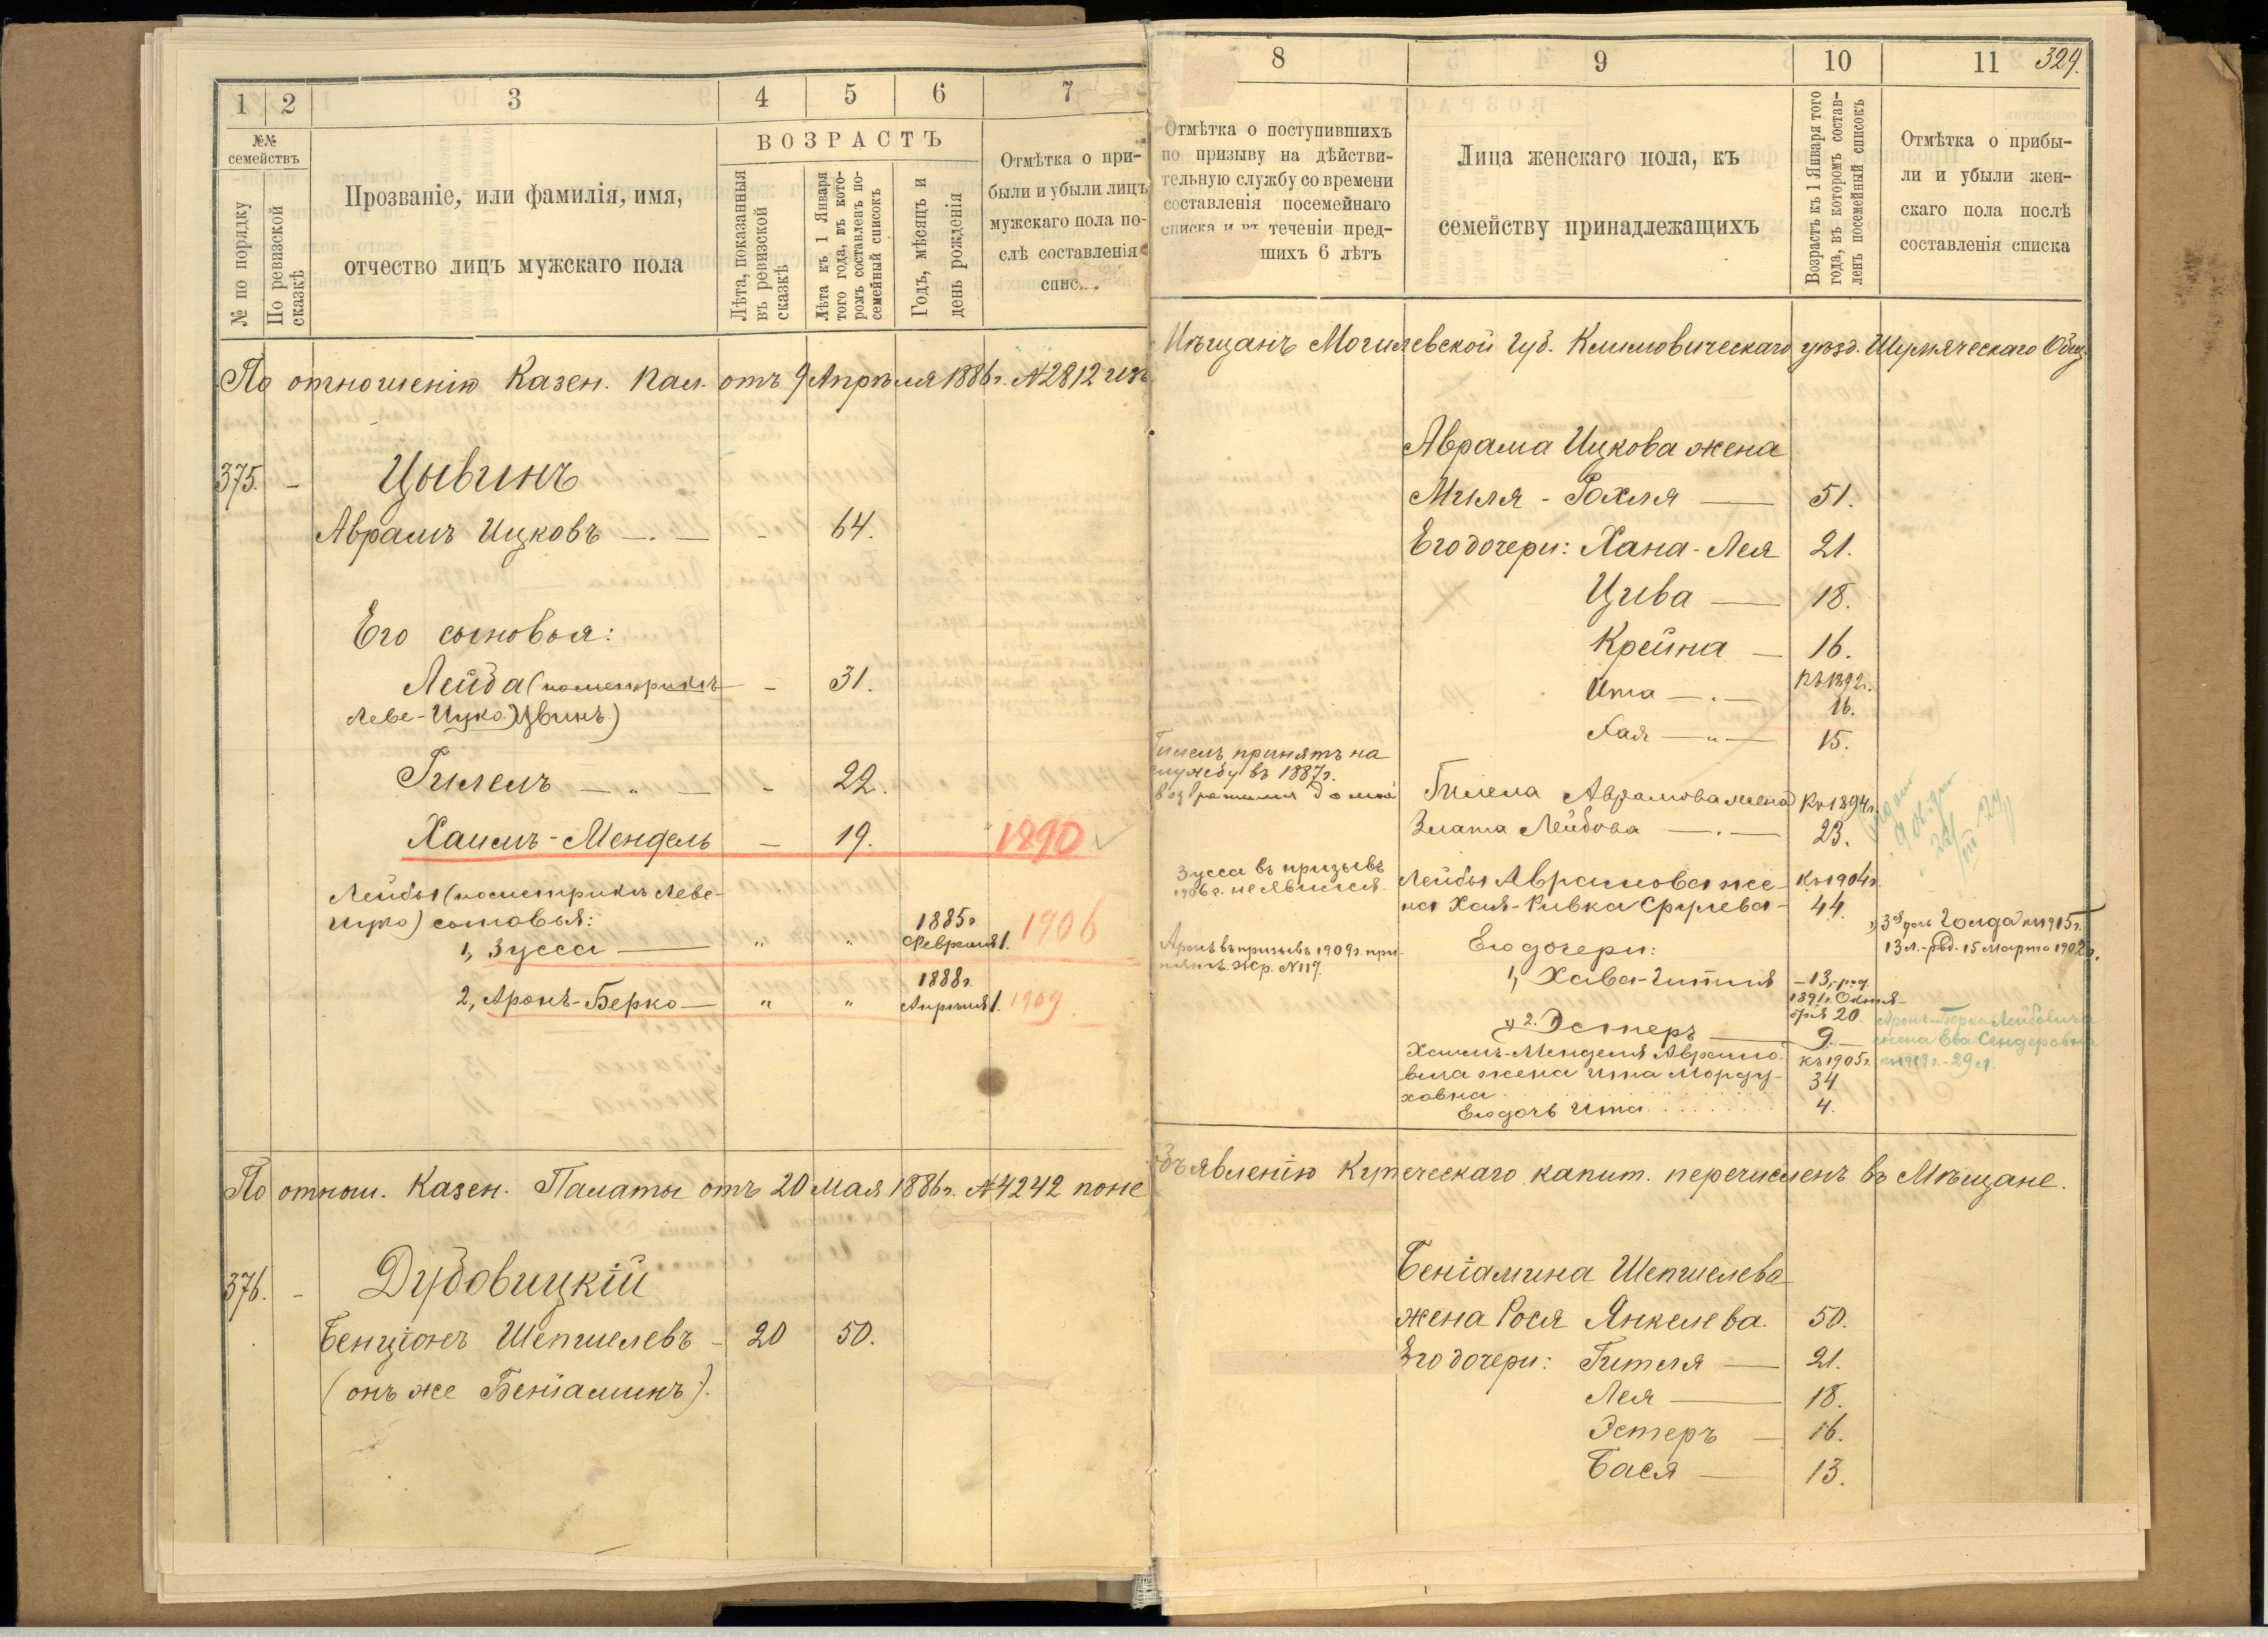 1 2 3 4 5 6 7
№№ семействъ
№ по порядку
По ревизской сказкѣ
Прозваніе, или фамилія, имя,
отчество лицъ мужскаго пола
ВОЗРАСТЪ
Лѣта, показанныя
въ ревизской
сказкѣ
Лѣта къ 1 Января
того года, въ кото-
ромъ составленъ по-
семейный списокъ
Годъ, мѣсяцъ и
день рожденія
Отмѣтка о при-
были и убыли лицъ
мужскаго пола по-
слѣ составленія
спис
По отношенію Казен. Пал. отъ 9 Апрѣля 1886г. №2812 изъ
375. - Цывинъ
Аврамъ Ицковъ - 64.
Его сыновья:
Лейба (по метрикѣ - 31.
Леве-Ицко) Цывинъ)
Гилель - „ - 22.
Хаимъ-Мендель - 19. 1890
Лейбы (по метрикѣ Леве-
Ицко) сыновья:
1, Зусса „ „ 1885г Февраля 1. 1906
2, Аронъ-Берко „ „ 1888г. Апрѣля 1. 1909
По отнош. Казен. Палаты отъ 20 Мая 1886г. №4242 поне
376. - Дубовицкій
Бенціонъ Шепшелевъ - 20 50.
(онъ же Беніаминъ).
8 9 10 11 329.
Отмѣтка о поступившихъ
по призыву на дѣйстви-
тельную службу со времени
составленія посемейнаго
списка и въ теченіи пред-
шихъ 6 лѣтъ
Лица женскаго пола, къ
семейству принадлежащихъ
Возрастъ къ 1 Января того
года, въ которомъ состав-
ленъ посемейный списокъ
Отмѣтка о прибы-
ли и убыли жен-
скаго пола послѣ
составленія списка
Мѣщанъ Могилевской губ. Климовическаго уѣзд. Шумяческаго Общ.
Аврама Ицкова жена
Миля - Рахля - 51.
Его дочери: Хана-Лея 21.
Цива - 18.
Крейна - 16.
Ита - къ 1892г. 16.
Хая - „ - 15.
Гилель принятъ на
службу въ 1887г.
возвратился домой
Гилеля Аврамова жена къ 1894г.
Злата Лейбова - 23.
Зусса въ призывъ
1906 г. не явился.
Лейбы Аврамова же- къ 1904г.
на Хая-Ривка Срулева - 44.
3я дочь Голда къ 1915г.
13 л. - рожд. 15 Марта 1902г.
Аронъ въ призывъ 1909г. при-
нятъ. Жр. №117.
Его дочери:
1, Хава-Гитля - 13, род.
1891г. Октя-
бря 20.
2. Эстеръ - 9.
Аронъ-Берко Лейбовича
жена Ева Сендеровна
къ 1919г. - 29 л.
Хаимъ-Менделя Аврамо- къ 1905г.
вича жена Ита Морду- 34
ховна
Его дочь Ита 4.
объявленію Купеческаго капит. перечисленъ въ Мѣщане.
Беніамина Шепшелева
жена Рося Янкелева. 50.
Его дочери: Гитля - 21.
Лея - 18.
Эстеръ - 16.
Бася - 13.